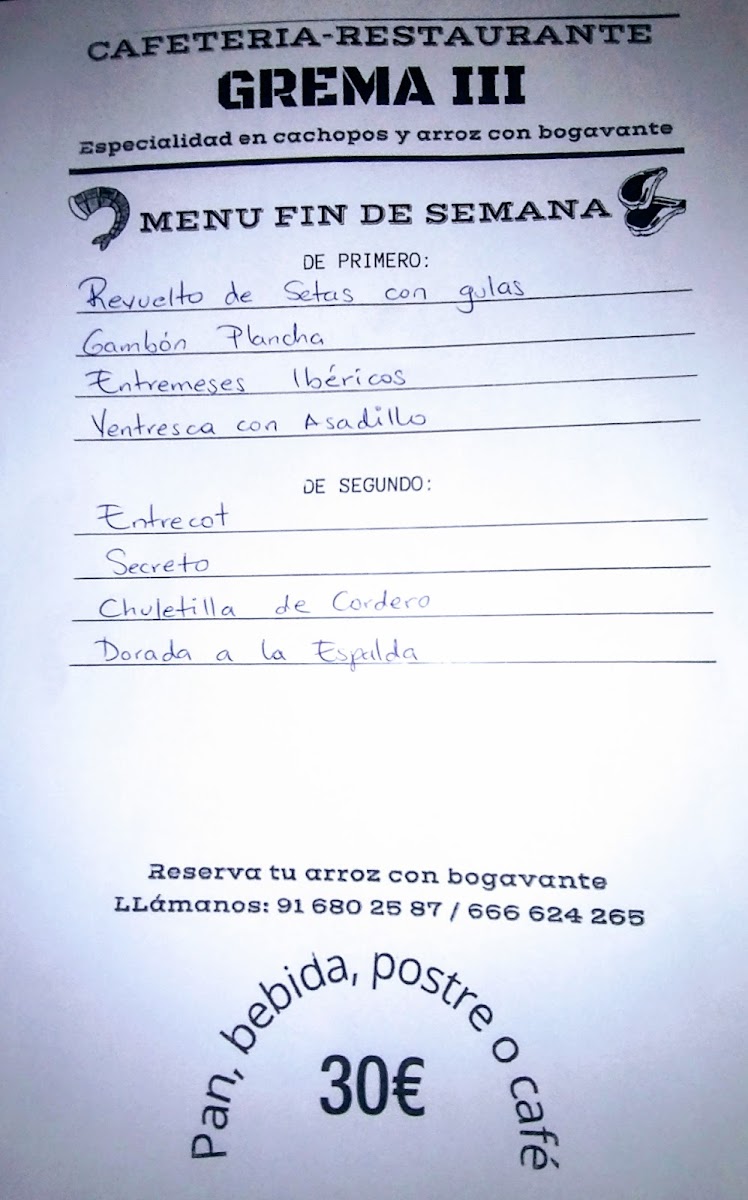 CAFETERIA-RESTAURANTE
GREMA III
Especialidad en cachopos y arroz con bogavante
MENU FIN DE SEMANA
DE PRIMERO:
Revuelto de Setas con gulas
Gambón Plancha
Entremeses Ibéricos
Ventresca con Asadillo
DE SEGUNDO:
Entrecot
Secreto
Chuletilla de Cordero
Dorada a la Espalda
Reserva tu arroz con bogavante
LLámanos: 91 680 25 87 / 666 624 265
Pan, bebida, postre o café
30€